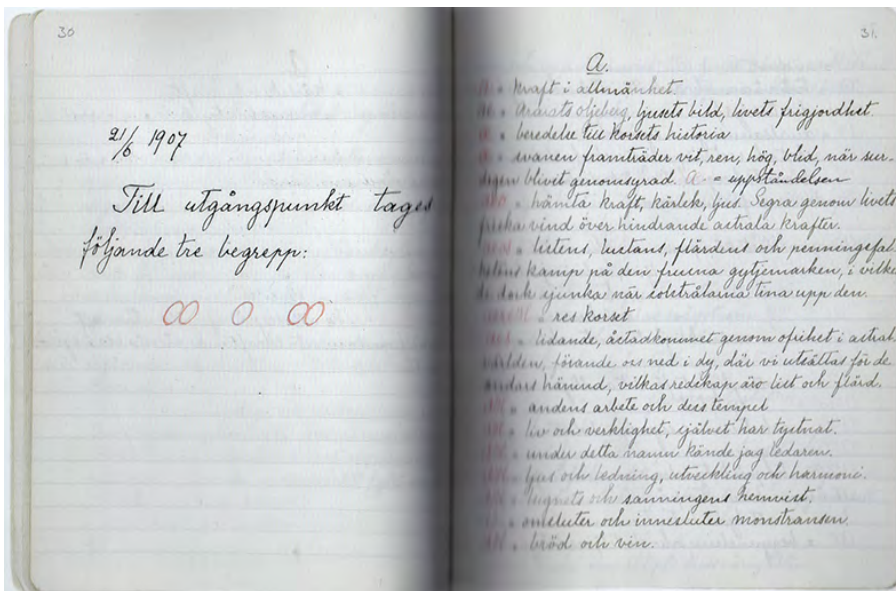 30
21/6 1907
Till utgångspunkt tages
följande tre begrepp:
31.
A.
= kraft i allmänhet.
= Ararats oljeberg, ljusets bild, livets frigjordhet.
= beredelse till korsets historia
= svanen framträder vit, ren, hög, blid, när sur-
degen blivit genomsyrad. = uppståndelsen
= hämta kraft, kärlek, ljus. Segra genom livets
friska vind över hindrande astrala krafter.
= listens, lustans, flärdens och penningefal-
kamp på den frusna gyttjemarken, i vilke
de dock sjunka när solstrålarna tina upp den.
= res korset
= lidande, åstadkommet genom ofrihet i astral-
världen, förande oss ned i dy, där vi utsättas för de
andars hämnd, vilkas redskap äro list och flärd.
= andens arbete och dess tempel
= liv och verklighet, självet har tystnat.
= under detta namn kände jag ledaren.
= ljus och ledning, utveckling och harmoni.
= lugnets och sanningens hemvist.
= omsluter och innesluter monstransen.
= bröd och vin.